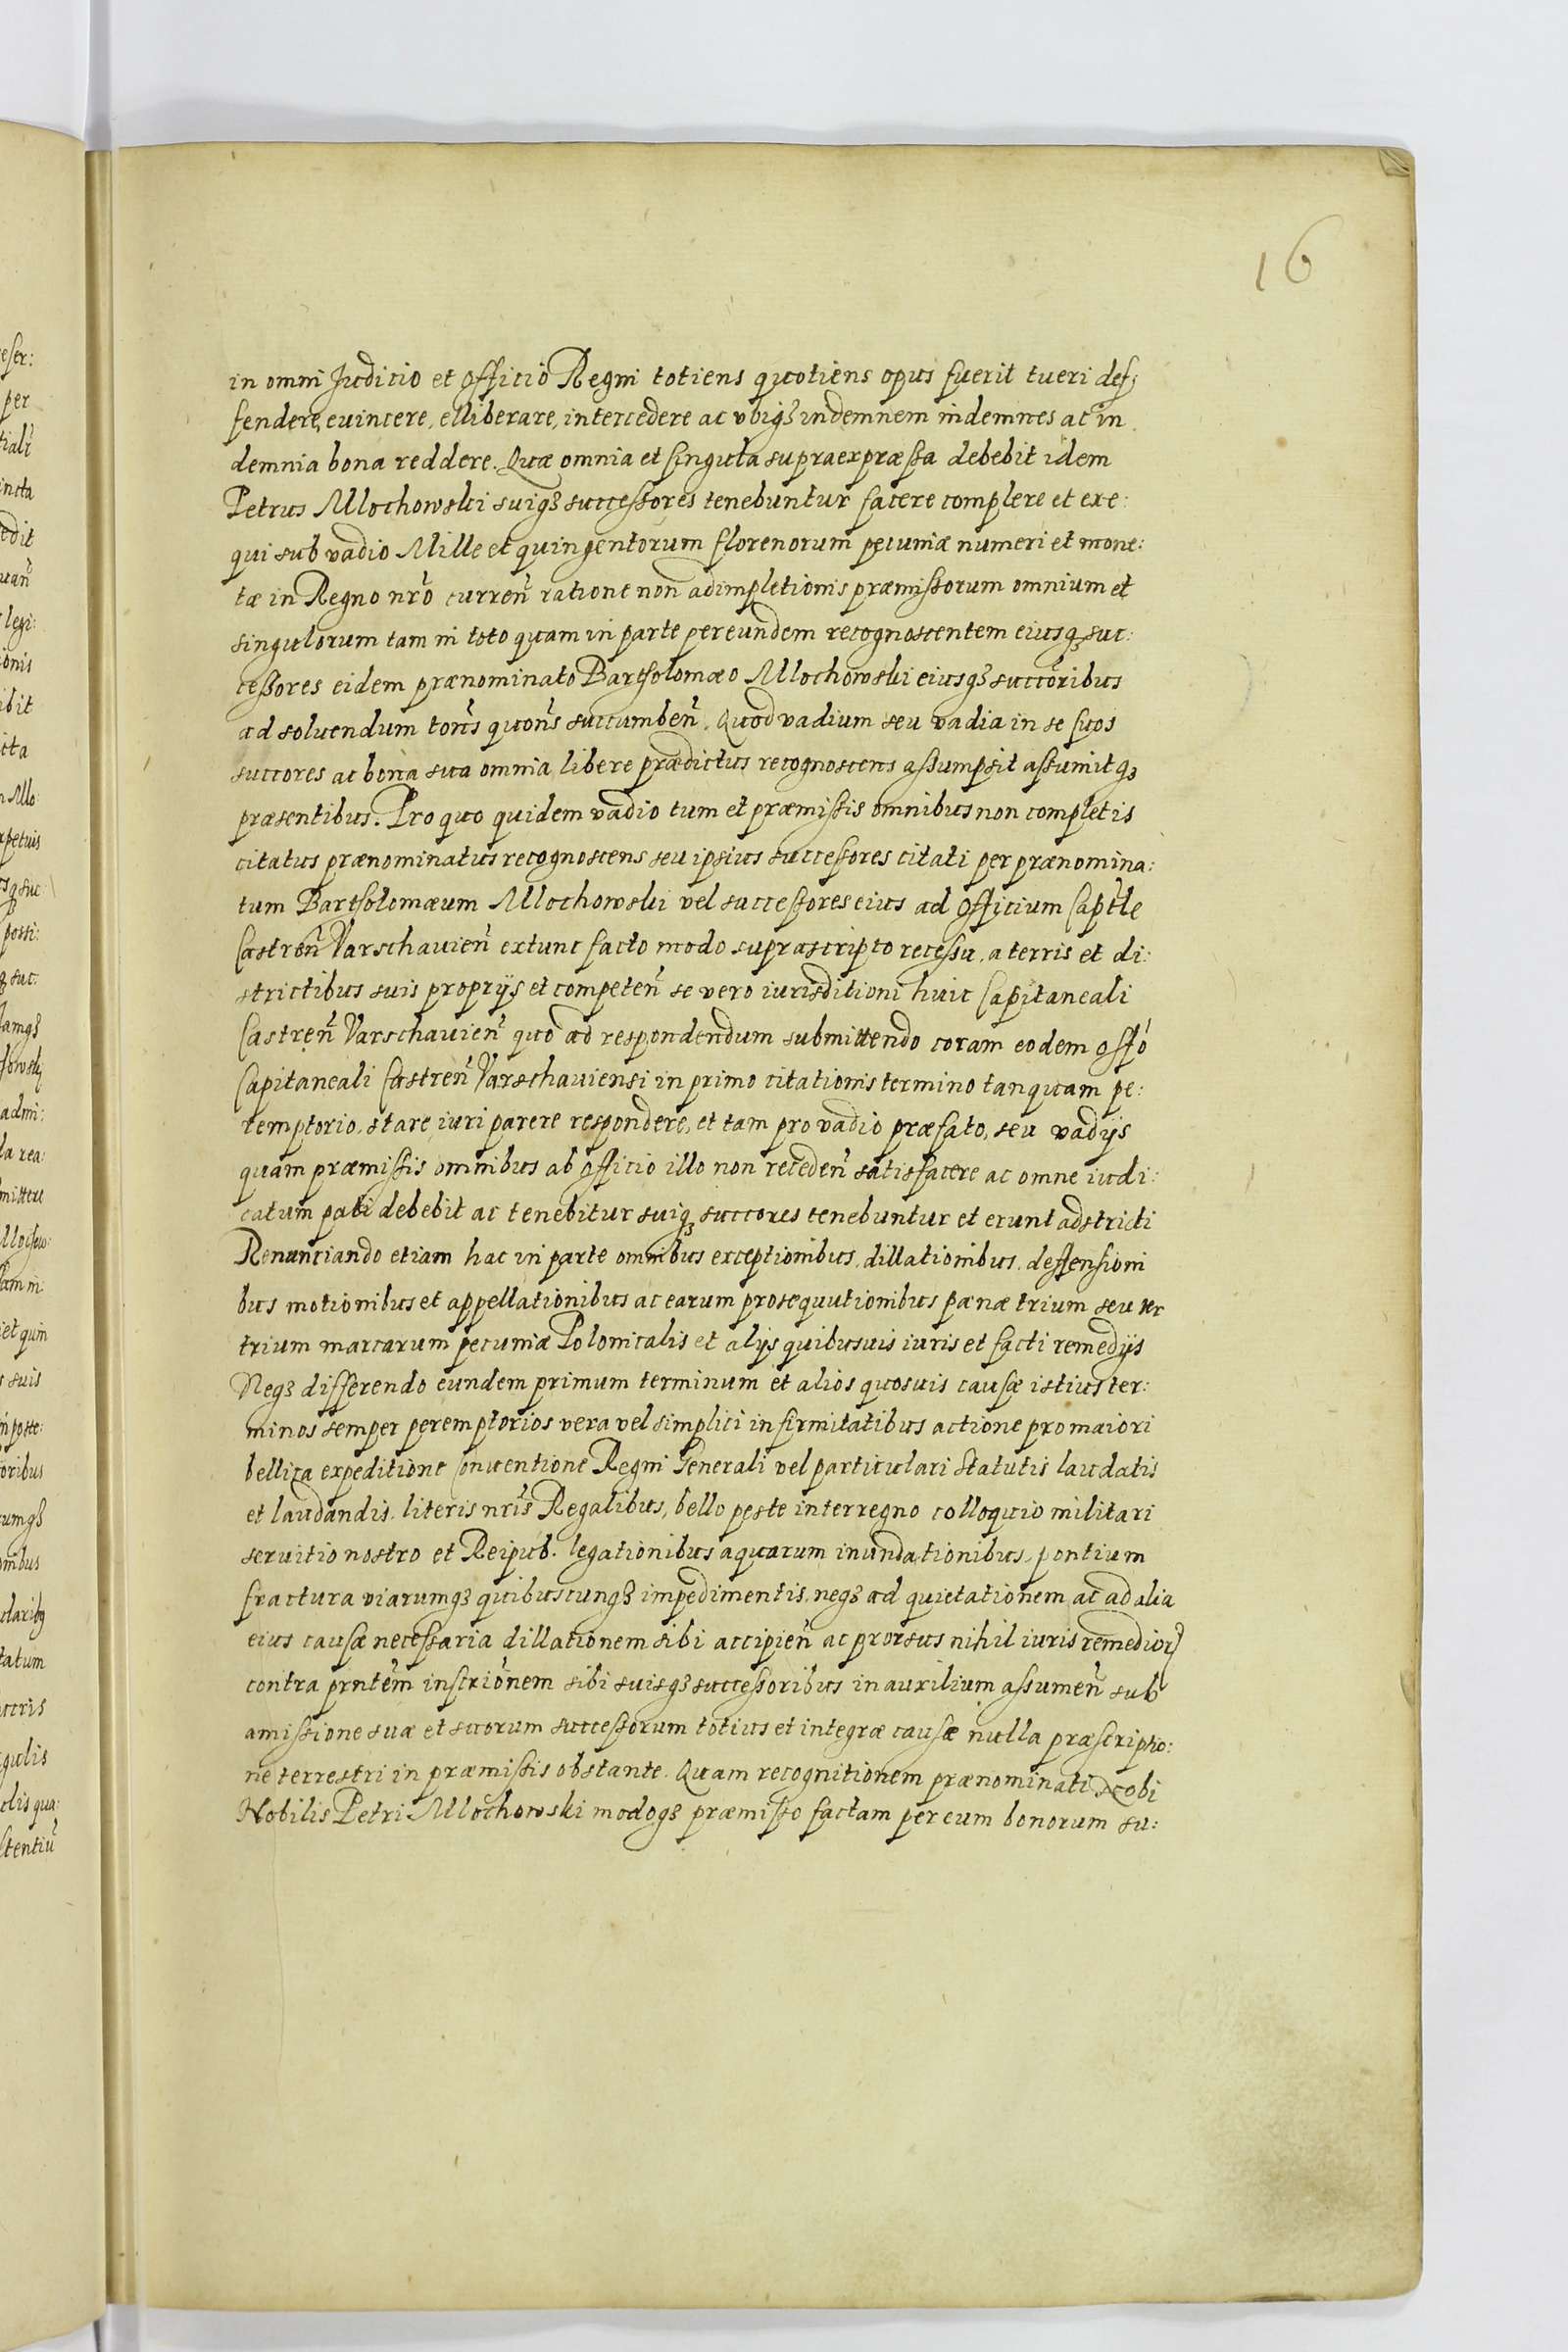 16
in omni Judicio et Officio Regni totiens quotiens opus fuerit tueri def;
fendere, euincere, elliberare, intercedere ac vbiqꝫ indemnem indemnes ac in
demnia bona reddere. Quæ omnia et singula supraexpræssa debebit idem
Petrus Mlochowski suiqꝫ successores tenebuntur facere complere et exe:
qui sub vadio Mille et quingentorum florenorum pecuniæ numeri et mone:
tæ in Regno nr̃o curreñ ratione non adimpletionis præmissorum omnium et
singulorum tam in toto quam in parte per eundem recognoscentem eiusqꝫ suc:
cessores eidem prænominato Bartholomæo Mlochowski eiusqꝫ succõribus
ad soluendum toñs quoñs succumbeñ. Quod vadium seu vadia in se suos
succores ac bona sua omnia libere prædictus recognoscens assumpsit assumitqꝫ
præsentibus. Pro quo quidem vadio tum et præmissis omnibus non completis
citatus prænominatus recognoscens seu ipsius successores citati per prænomina:
tum Bartholomæum Mlochowski vel successores eius ad Officium Captle
Castreñ Varschauieñ extunc facto modo suprascripto recessu, a terris et di:
strictibus suis proprijs et competeñ se vero iurisditioni huic Capitaneali
Castreñ Varschauieñ quo ad respondendum submittendo coram eodem offo
Capitaneali Castreñ Varschauiensi in primo citationis termino tanquam pe:
remptorio, stare iuri parere respondere, et tam pro vadio præfato, seu vadijs
quam præmissis omnibus ab officio illo non recedeñ satisfacere ac omne iudi:
catum pati debebit ac tenebitur suiqꝫ succores tenebuntur et erunt adstricti
Renunciando etiam hac in parte omnibus exceptionibus, dillationibus, deffensioni
bus motionibus et appellationibus ac earum prosequutionibus pænæ trium seu
trium marcarum pecuniæ Polonicalis et alijs quibusuis iuris et facti remedijs
Neqꝫ differendo eundem primum terminum et alios quosuis causæ istius ter:
minos semper peremptorios vera vel simplici infirmitatibus actione pro maiori
bellica expeditione Conuentione Regni Generali vel particulari Statutis laudatis
et laudandis, literis nr̃is Regalibus, bello peste interregno colloquio militari
seruitio nostro et Reipub. legationibus aquarum inundationibus, pontium
fractura viarumqꝫ quibuscunqꝫ impedimentis, neqꝫ ad quietationem ac ad alia
eius causæ necessaria dillationem sibi accipieñ ac prorsus nihil iuris remedioꝝ
contra prnte͠m inscrio͠nem sibi suisqꝫ successoribus in auxilium assumeñ sub
amissione suæ et suorum successorum totius et integræ causæ nulla præscriptio:
ne terrestri in præmissis obstante. Quam recognitionem prænominati
Nobilis Petri Mlochowski modoqꝫ præmisso factam per eum bonorum su: